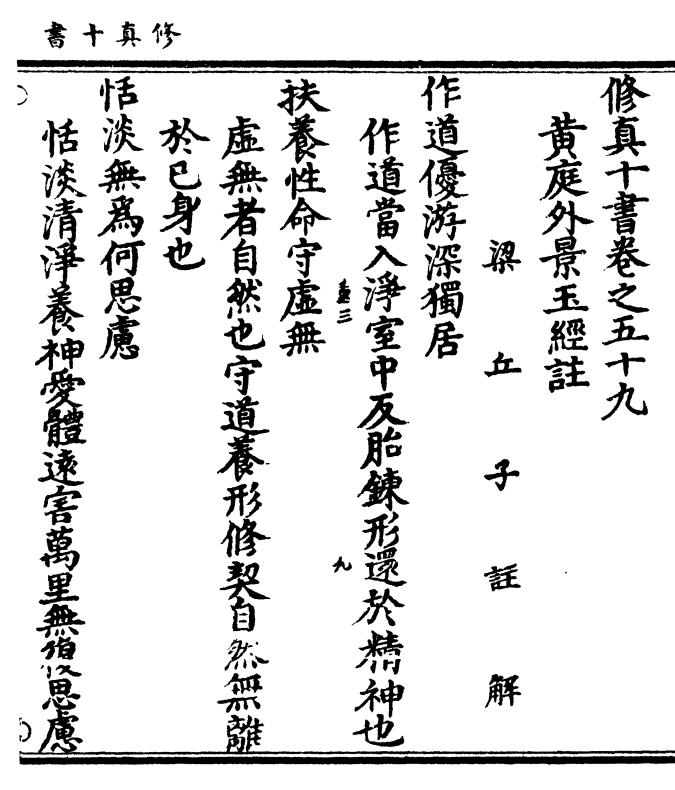 修真十書
修真十書卷之五十九
黄庭外景玉經註
梁丘子註解
作道優游深獨居
作道當入淨室中反胎鍊形還於精神也
扶養性命守虛無
三
九
虛無者自然也守道養形修契自然無離
於已身也
恬淡無爲何思慮
恬淡清淨養神愛體遠害萬里無復思慮